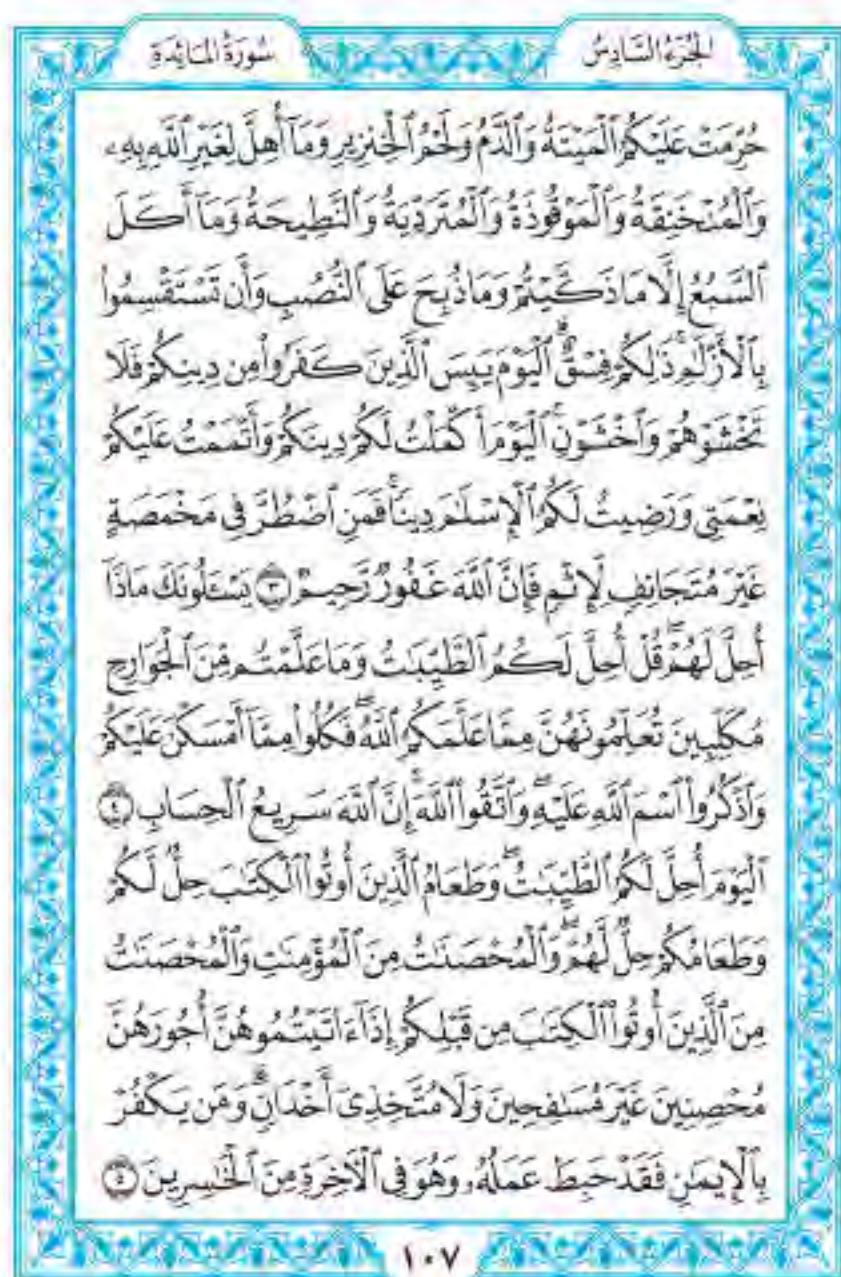 الجُزْءُ السَّادِسُ سُورَةُ المَائِدَةِ
حُرِّمَتْ عَلَيْكُمُ ٱلْمَيْتَةُ وَٱلدَّمُ وَلَحْمُ ٱلْخِنزِيرِ وَمَآ أُهِلَّ لِغَيْرِ ٱللَّهِ بِهِۦ
وَٱلْمُنْخَنِقَةُ وَٱلْمَوْقُوذَةُ وَٱلْمُتَرَدِّيَةُ وَٱلنَّطِيحَةُ وَمَآ أَكَلَ
ٱلسَّبُعُ إِلَّا مَا ذَكَّيْتُمْ وَمَا ذُبِحَ عَلَى ٱلنُّصُبِ وَأَن تَسْتَقْسِمُوا۟
بِٱلْأَزْلَٰمِۚ ذَٰلِكُمْ فِسْقٌۗ ٱلْيَوْمَ يَئِسَ ٱلَّذِينَ كَفَرُوا۟ مِن دِينِكُمْ فَلَا
تَخْشَوْهُمْ وَٱخْشَوْنِۚ ٱلْيَوْمَ أَكْمَلْتُ لَكُمْ دِينَكُمْ وَأَتْمَمْتُ عَلَيْكُمْ
نِعْمَتِى وَرَضِيتُ لَكُمُ ٱلْإِسْلَٰمَ دِينًاۚ فَمَنِ ٱضْطُرَّ فِى مَخْمَصَةٍ
غَيْرَ مُتَجَانِفٍ لِّإِثْمٍ فَإِنَّ ٱللَّهَ غَفُورٌ رَّحِيمٌ ٣ يَسْـَٔلُونَكَ مَاذَآ
أُحِلَّ لَهُمْۖ قُلْ أُحِلَّ لَكُمُ ٱلطَّيِّبَٰتُ وَمَا عَلَّمْتُم مِّنَ ٱلْجَوَارِحِ
مُكَلِّبِينَ تُعَلِّمُونَهُنَّ مِمَّا عَلَّمَكُمُ ٱللَّهُۖ فَكُلُوا۟ مِمَّآ أَمْسَكْنَ عَلَيْكُمْ
وَٱذْكُرُوا۟ ٱسْمَ ٱللَّهِ عَلَيْهِۖ وَٱتَّقُوا۟ ٱللَّهَۚ إِنَّ ٱللَّهَ سَرِيعُ ٱلْحِسَابِ ٤
ٱلْيَوْمَ أُحِلَّ لَكُمُ ٱلطَّيِّبَٰتُۖ وَطَعَامُ ٱلَّذِينَ أُوتُوا۟ ٱلْكِتَٰبَ حِلٌّ لَّكُمْ
وَطَعَامُكُمْ حِلٌّ لَّهُمْۖ وَٱلْمُحْصَنَٰتُ مِنَ ٱلْمُؤْمِنَٰتِ وَٱلْمُحْصَنَٰتُ
مِنَ ٱلَّذِينَ أُوتُوا۟ ٱلْكِتَٰبَ مِن قَبْلِكُمْ إِذَآ ءَاتَيْتُمُوهُنَّ أُجُورَهُنَّ
مُحْصِنِينَ غَيْرَ مُسَٰفِحِينَ وَلَا مُتَّخِذِىٓ أَخْدَانٍۗ وَمَن يَكْفُرْ
بِٱلْإِيمَٰنِ فَقَدْ حَبِطَ عَمَلُهُۥ وَهُوَ فِى ٱلْءَاخِرَةِ مِنَ ٱلْخَٰسِرِينَ ٥
١٠٧